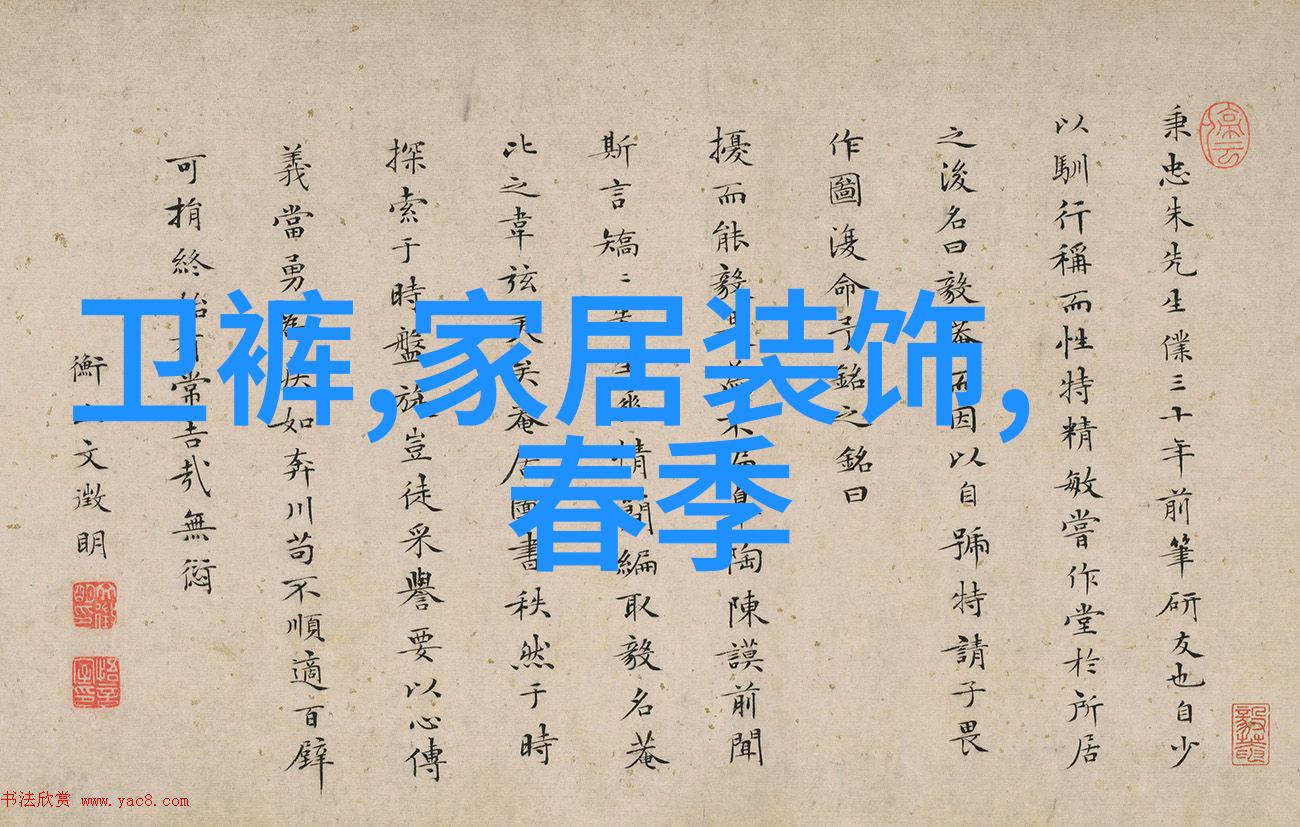 卫裤,家居装饰,
春季
秉忠朱先生僕三十年前筆研友也自少
以馴行稱而性特精敏嘗作堂於所居
之後名曰毅菴因以自號特請子畏
作圖復命予銘之銘曰
擾而能毅不偏皋陶陳謨前聞
斯言矯〻情簡編取毅名菴
比之韋弦美矣菴居圖書秩然于時
探索于時盤旋豈徒采譽要以心傳
義當勇為疾如奔川苟不順適百
可捐終始有常吉哉無愆
衡山文徵明
书法欣赏 www.yac8.com